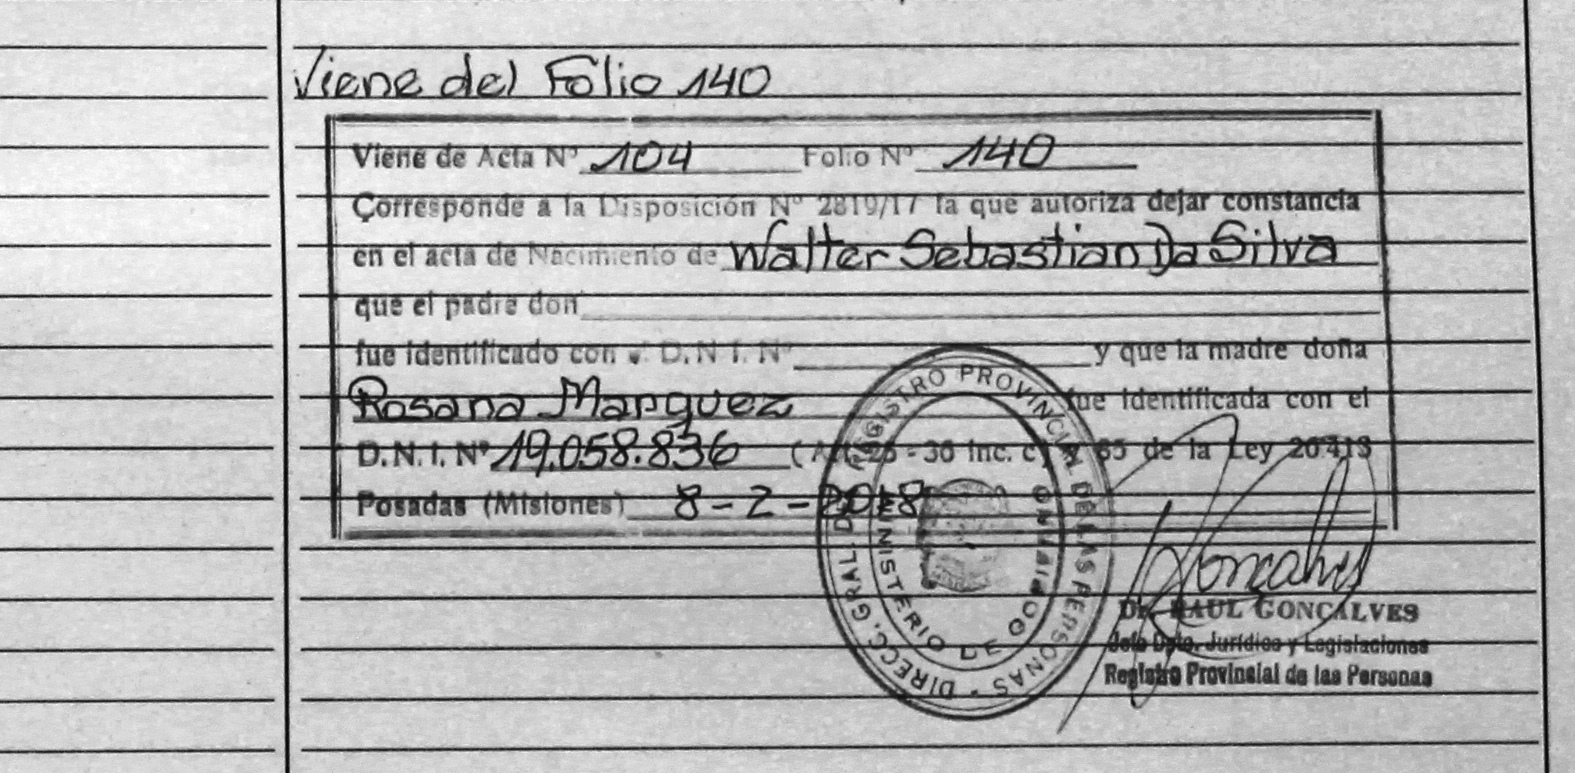 Viene del Folio 140
Viene de Acta Nº 104 Folio Nº 140
Corresponde a la Disposición Nº 2819/17 la que autoriza dejar constancia
en el acta de Nacimiento de Walter Sebastian Da Silva
que el padre don
fue identificado con D.N.I. Nº y que la madre doña
Rosana Marquez fue identificada con el
D.N.I. Nº 19.058.836 ( - 36 inc. c) y 65 de la Ley 20413
Posadas (Misiones) 8-2-2018
DIRECC. GRAL. REGISTRO PROVINCIAL DE LAS PERSONAS
MINISTERIO DE GOBIERNO
Goncalves
Dr. RAUL GONCALVES
Jefe Dpto. Jurídico y Legislaciones
Registro Provincial de las Personas